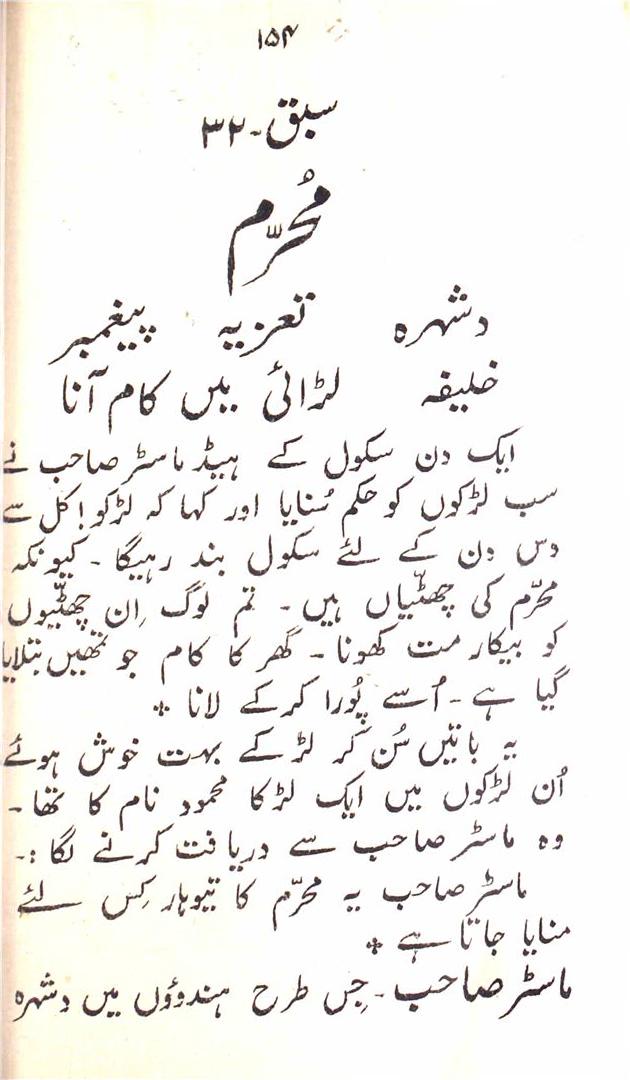 ۱۵۴
سبق - ۳۲
مُحرّم
دشہرہ تعزیہ پیغمبر
خلیفہ لڑائی میں کام آنا
ایک دن سکول کے ہیڈ ماسٹر صاحب نے
سب لڑکوں کو حکم سُنایا اور کہا کہ لڑکو! کل سے
دس دن کے لئے سکول بند رہیگا - کیونکہ
محرّم کی چھٹّیاں ہیں - تم لوگ اِن چھٹّیوں
کو بیکار مت کھونا - گھر کا کام جو تمھیں بتلایا
گیا ہے - اُسے پُورا کرکے لانا *
یہ باتیں سُن کر لڑکے بہت خوش ہوئے
اُن لڑکوں میں ایک لڑکا محمود نام کا تھا -
وہ ماسٹر صاحب سے دریافت کرنے لگا :-
ماسٹر صاحب یہ محرّم کا تیوہار کِس لئے
منایا جاتا ہے *
ماسٹر صاحب - جِس طرح ہندوؤں میں دشہرہ